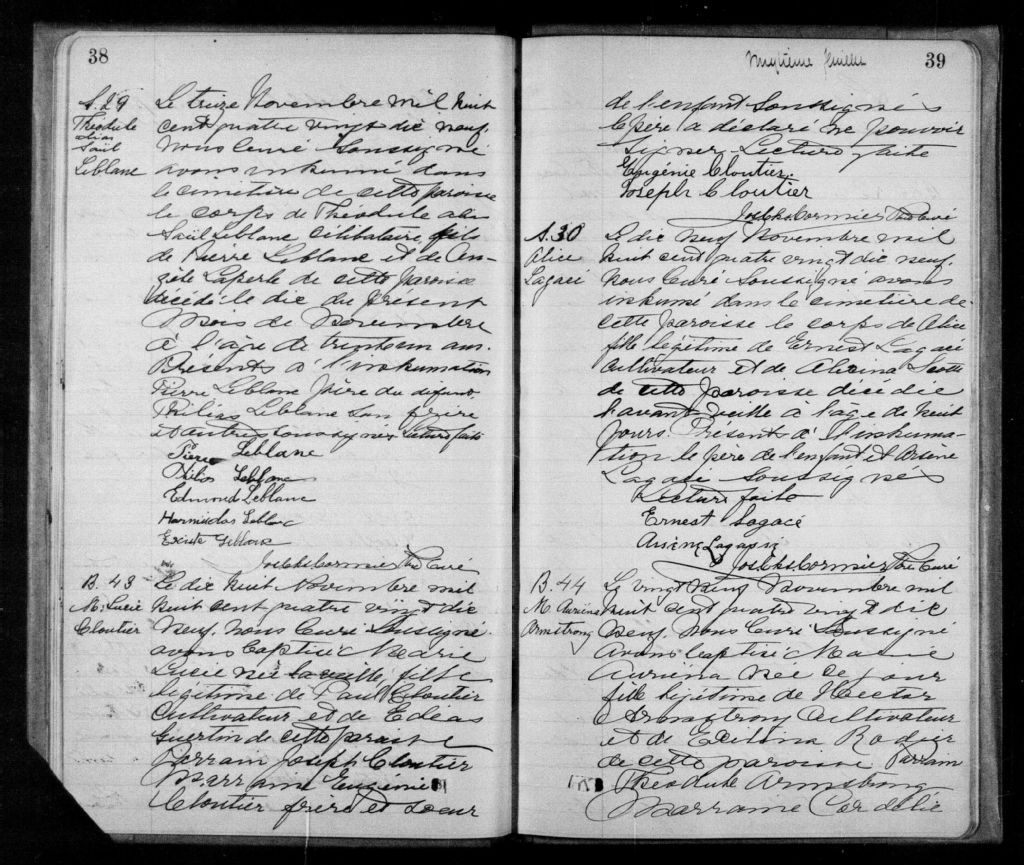 38
S. 29
Théodule
alias
Saül
Leblanc
Le treize Novembre mil huit
cent quatre vingt dix neuf,
nous curé soussigné
avons inhumé dans
le cimetière de cette paroisse
le corps de Théodule alis
Saül Leblanc célibataire fils
de Pierre Leblanc et de An-
gèle Laperle de cette paroisse
décédé le dix du présent
mois de Novembre
à l'âge de ans.
Présents à l'inhumation
Pierre Leblanc père du défunt
Philias Leblanc son frère
et autres soussignés Lecture faite
Pierre Leblanc
Philias Leblanc
Edmond Leblanc
Hormisdas Leblanc
Jos Cormier Ptre Curé
B. 43
M. Lucie
Cloutier
Le dix huit Novembre mil
huit cent quatre vingt dix
neuf, nous Curé soussigné
avons baptisé Marie
Lucie née la veille, fille
légitime de Paul Cloutier
Cultivateur et de
Guertin de cette paroisse
Parrain Joseph Cloutier
Marraine Eugénie
Cloutier frère et soeur
39
de l'enfant soussignés
le père a déclaré ne pouvoir
signer. Lecture faite
Eugénie Cloutier.
Joseph Cloutier
Jos Cormier Ptre Curé
S. 30
Alice
Lagacé
Le dix neuf Novembre mil
huit cent quatre vingt dix neuf,
nous Curé soussigné avons
inhumé dans le cimetière de
cette paroisse le corps de Alice
fille légitime de Ernest Lagacé
Cultivateur et de
de cette paroisse décédée
l'avant veille à l'age de huit
jours. Présents à l'inhuma-
tion le père de l'enfant et Arsène
Lagacé soussignés
Lecture faite
Ernest Lagacé
Arsène Lagassé
Jos Cormier Ptre Curé
B. 44
M Auréna
Armstrong
Le vingt Novembre mil
huit cent quatre vingt dix
neuf, nous Curé soussigné
avons baptisé Marie
Auréna née ce jour
fille légitime de Hector
Armstrong Cultivateur
et de Rodier
de cette paroisse Parrain
Théodule Armstrong
Marraine Cordélie